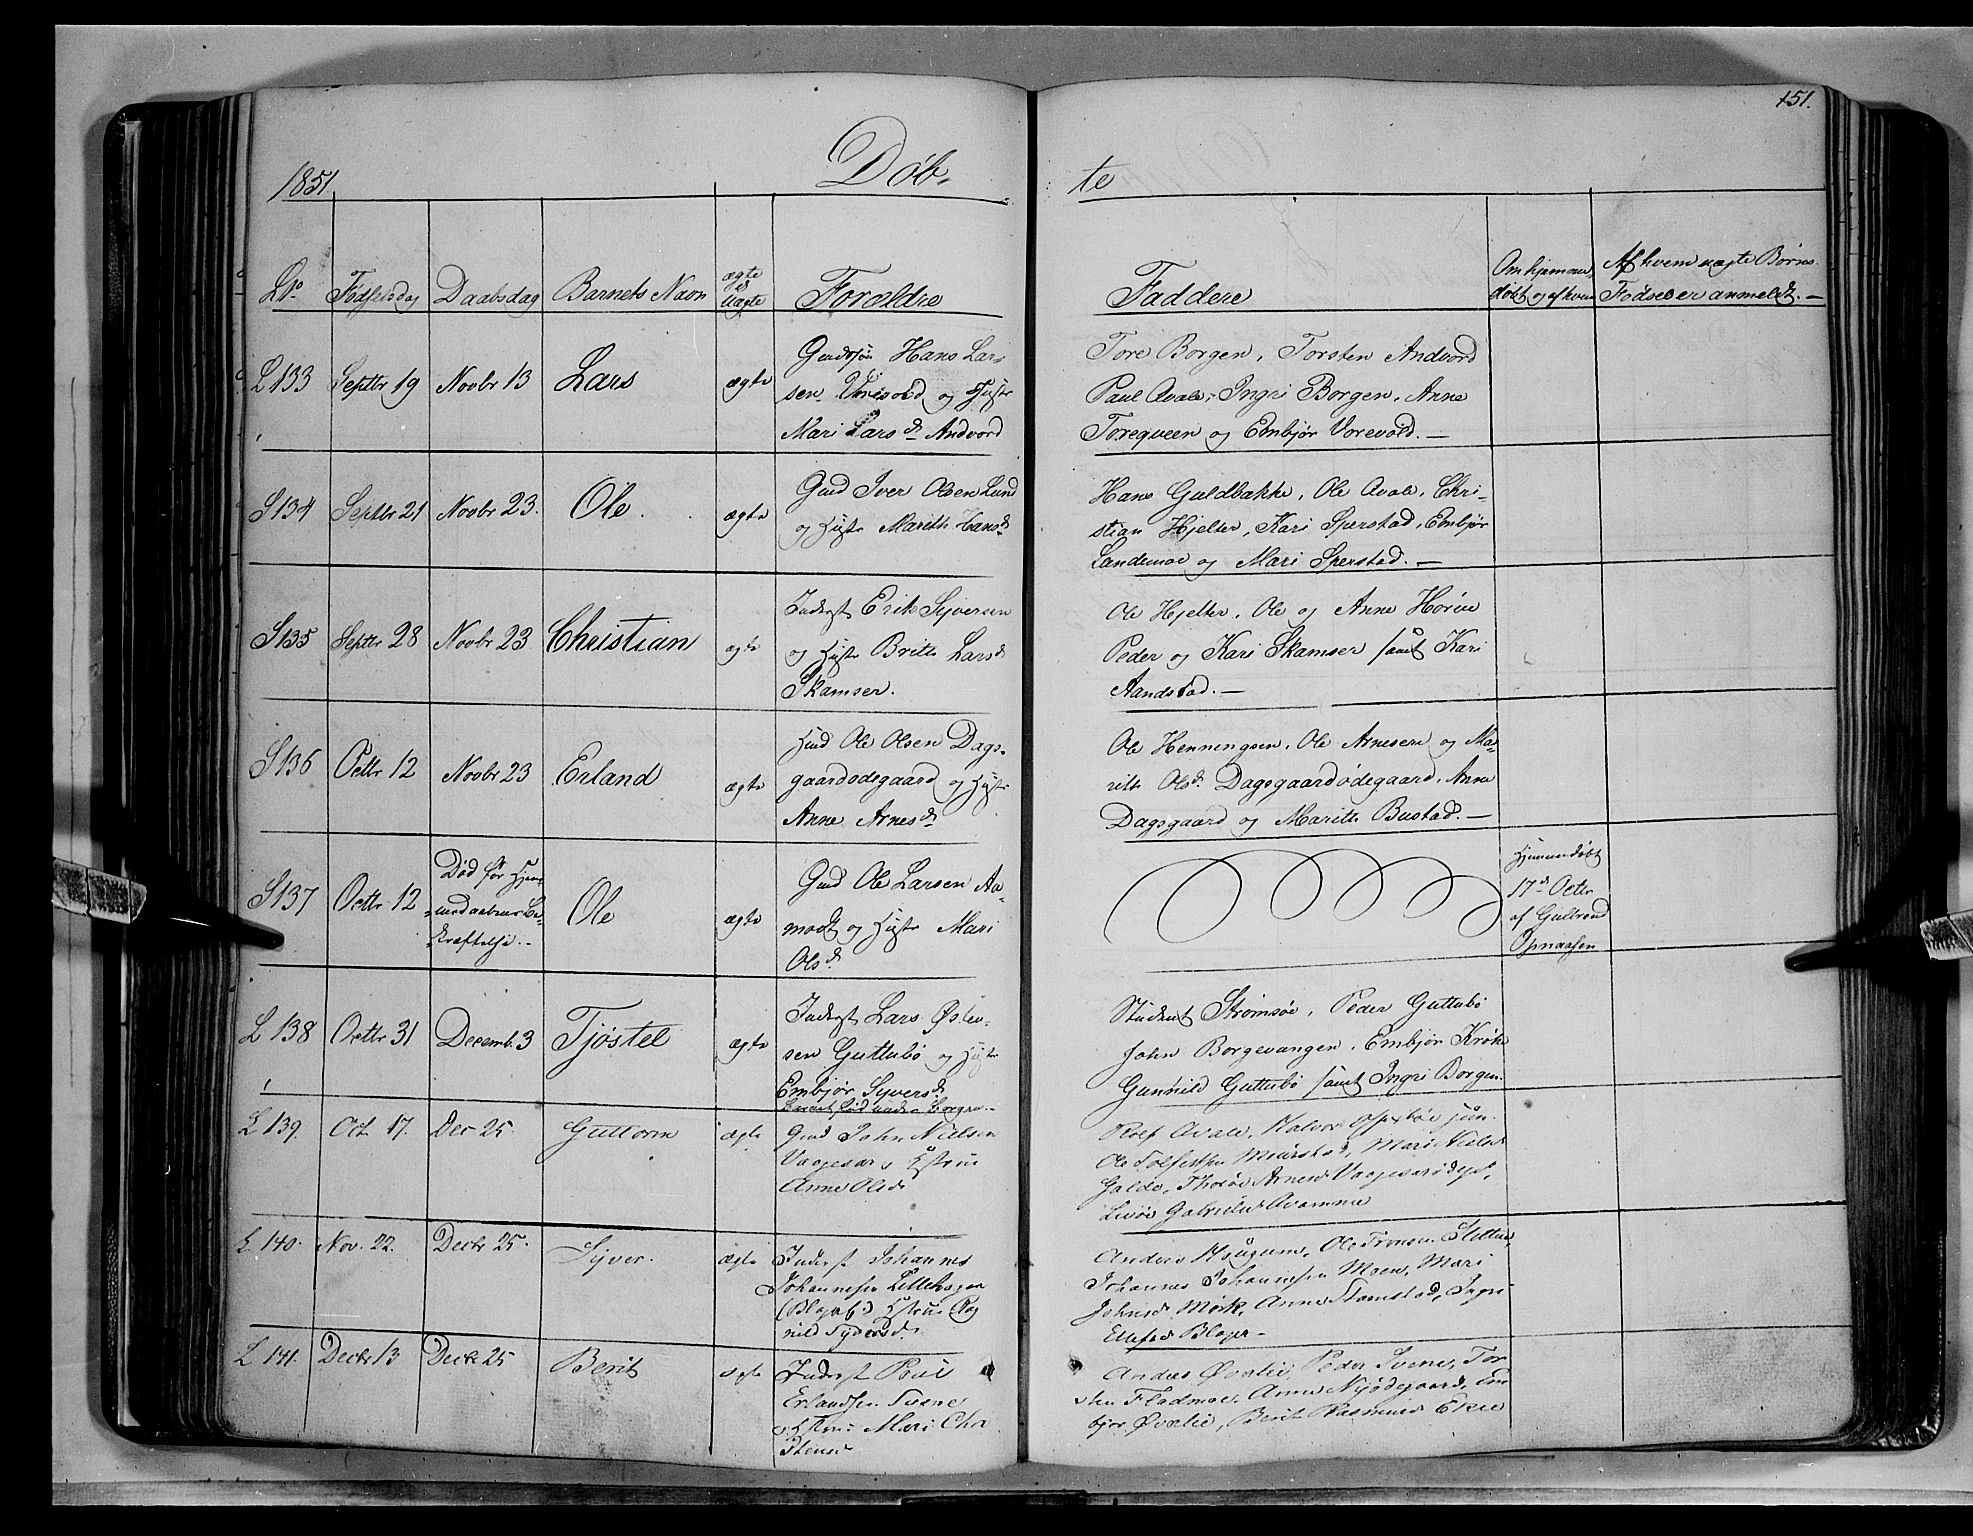 151.
1851.
Døb-
te
No.
Fødselsdag
Daabsdag
Barnets Navn
ægte
el
Uægte
Forældre
Faddere
Om hjemme-
døbt og af hvem
Af hvem uægte Børns
Fødsel er anmeldt. —
L 133
Septbr 19
Novbr 13
Lars
ægte
Gaardsøn Hans Lar-
sen Vorevold og Hustr
Mari Larsd. Andvord
Tore Borgen, Torsten Andvord
Paul Avale, Ingri Borgen, Anne
Toreqveen og Embjør Vorevold. —
S 134
Septbr 21
Novbr 23.
Ole.
ægte
Gmd Iver Olsen Lund
og Hustr Marith Hansd.
Hans Guldbakke, Ole Avale, Chri-
stian Hjelter, Kari Sperstad, Embjør
Landemoe og Mari Sperstad. —
S 135
Septbr 28
Novbr 23
Christian
ægte
Inderst Erik Syversen
og Hustr Brith Larsd.
Skamser.
Ole Hjelter, Ole og Anne Horine
Peder og Kari Skamser samt Kari
Aandstad. —
S 136
Octbr 12
Novbr 23
Erland
ægte
Hmd Ole Olsen Dags-
gaardodegaard og Hustr
Anne Arnesd.
Ole Henningsen, Ole Arnesen og Ma-
rith Olsd. Dagsgaardødegaard, Anne
Dagsgaard og Marith Bustad. —
S 137
Octbr 12
Død før Hjem-
medaabens Be-
kræftelse.
Ole
ægte
Gmd Ole Larsen Aa-
modt og Hustr Mari
Olsd.
Hjemmedøbt
17d. Octbr
af Gulbrand
Opnaasen
L 138
Octbr 31
Decemb. 3
Tjøstel
ægte
Inderst Lars Østen-
sen Guttubø og Hustr
Embjør Syversd.
Barnet født under Borgen.
Student Strømsøe, Peder Guttubø
John Borgevangen, Embjør Krøke
Gunhild Guttubø samt Ingri Borgen.
L 139.
Oct 17.
Dec 25.
Guttorm
ægte
Gmd John Nielsen
Vaagesar, Hustrue
Anne Olsd.
Rolf Avale, Halvor jun.
Ole Tolfestsen Meurstad, Mari Nielsd
Galde, Arnesd
Gabrielsd
L. 140.
Nov. 22.
Decbr 25.
Syver.
ægte
Inderst Johannes
Johannesen Lillehagen
Hustrue Rag
nild Syversd.
Anders Ole Tronsen
Johannes Johannesen Moen, Mari
Johnsd. Mork, Anne Stamstad, Ingri
Ellefsd Blager -
L 141.
Decbr 13
Decbr 25
Berit
ægte
Inderst Poul
Erlandsen Svene
Hustru Mari Chri
stensd.
Anders Øvrelie, Peder Svene, Tor
sten Fladmoe, Anne Nyødegaard, Em
bjør Øvrelie, Berit Rasmusd Ekre